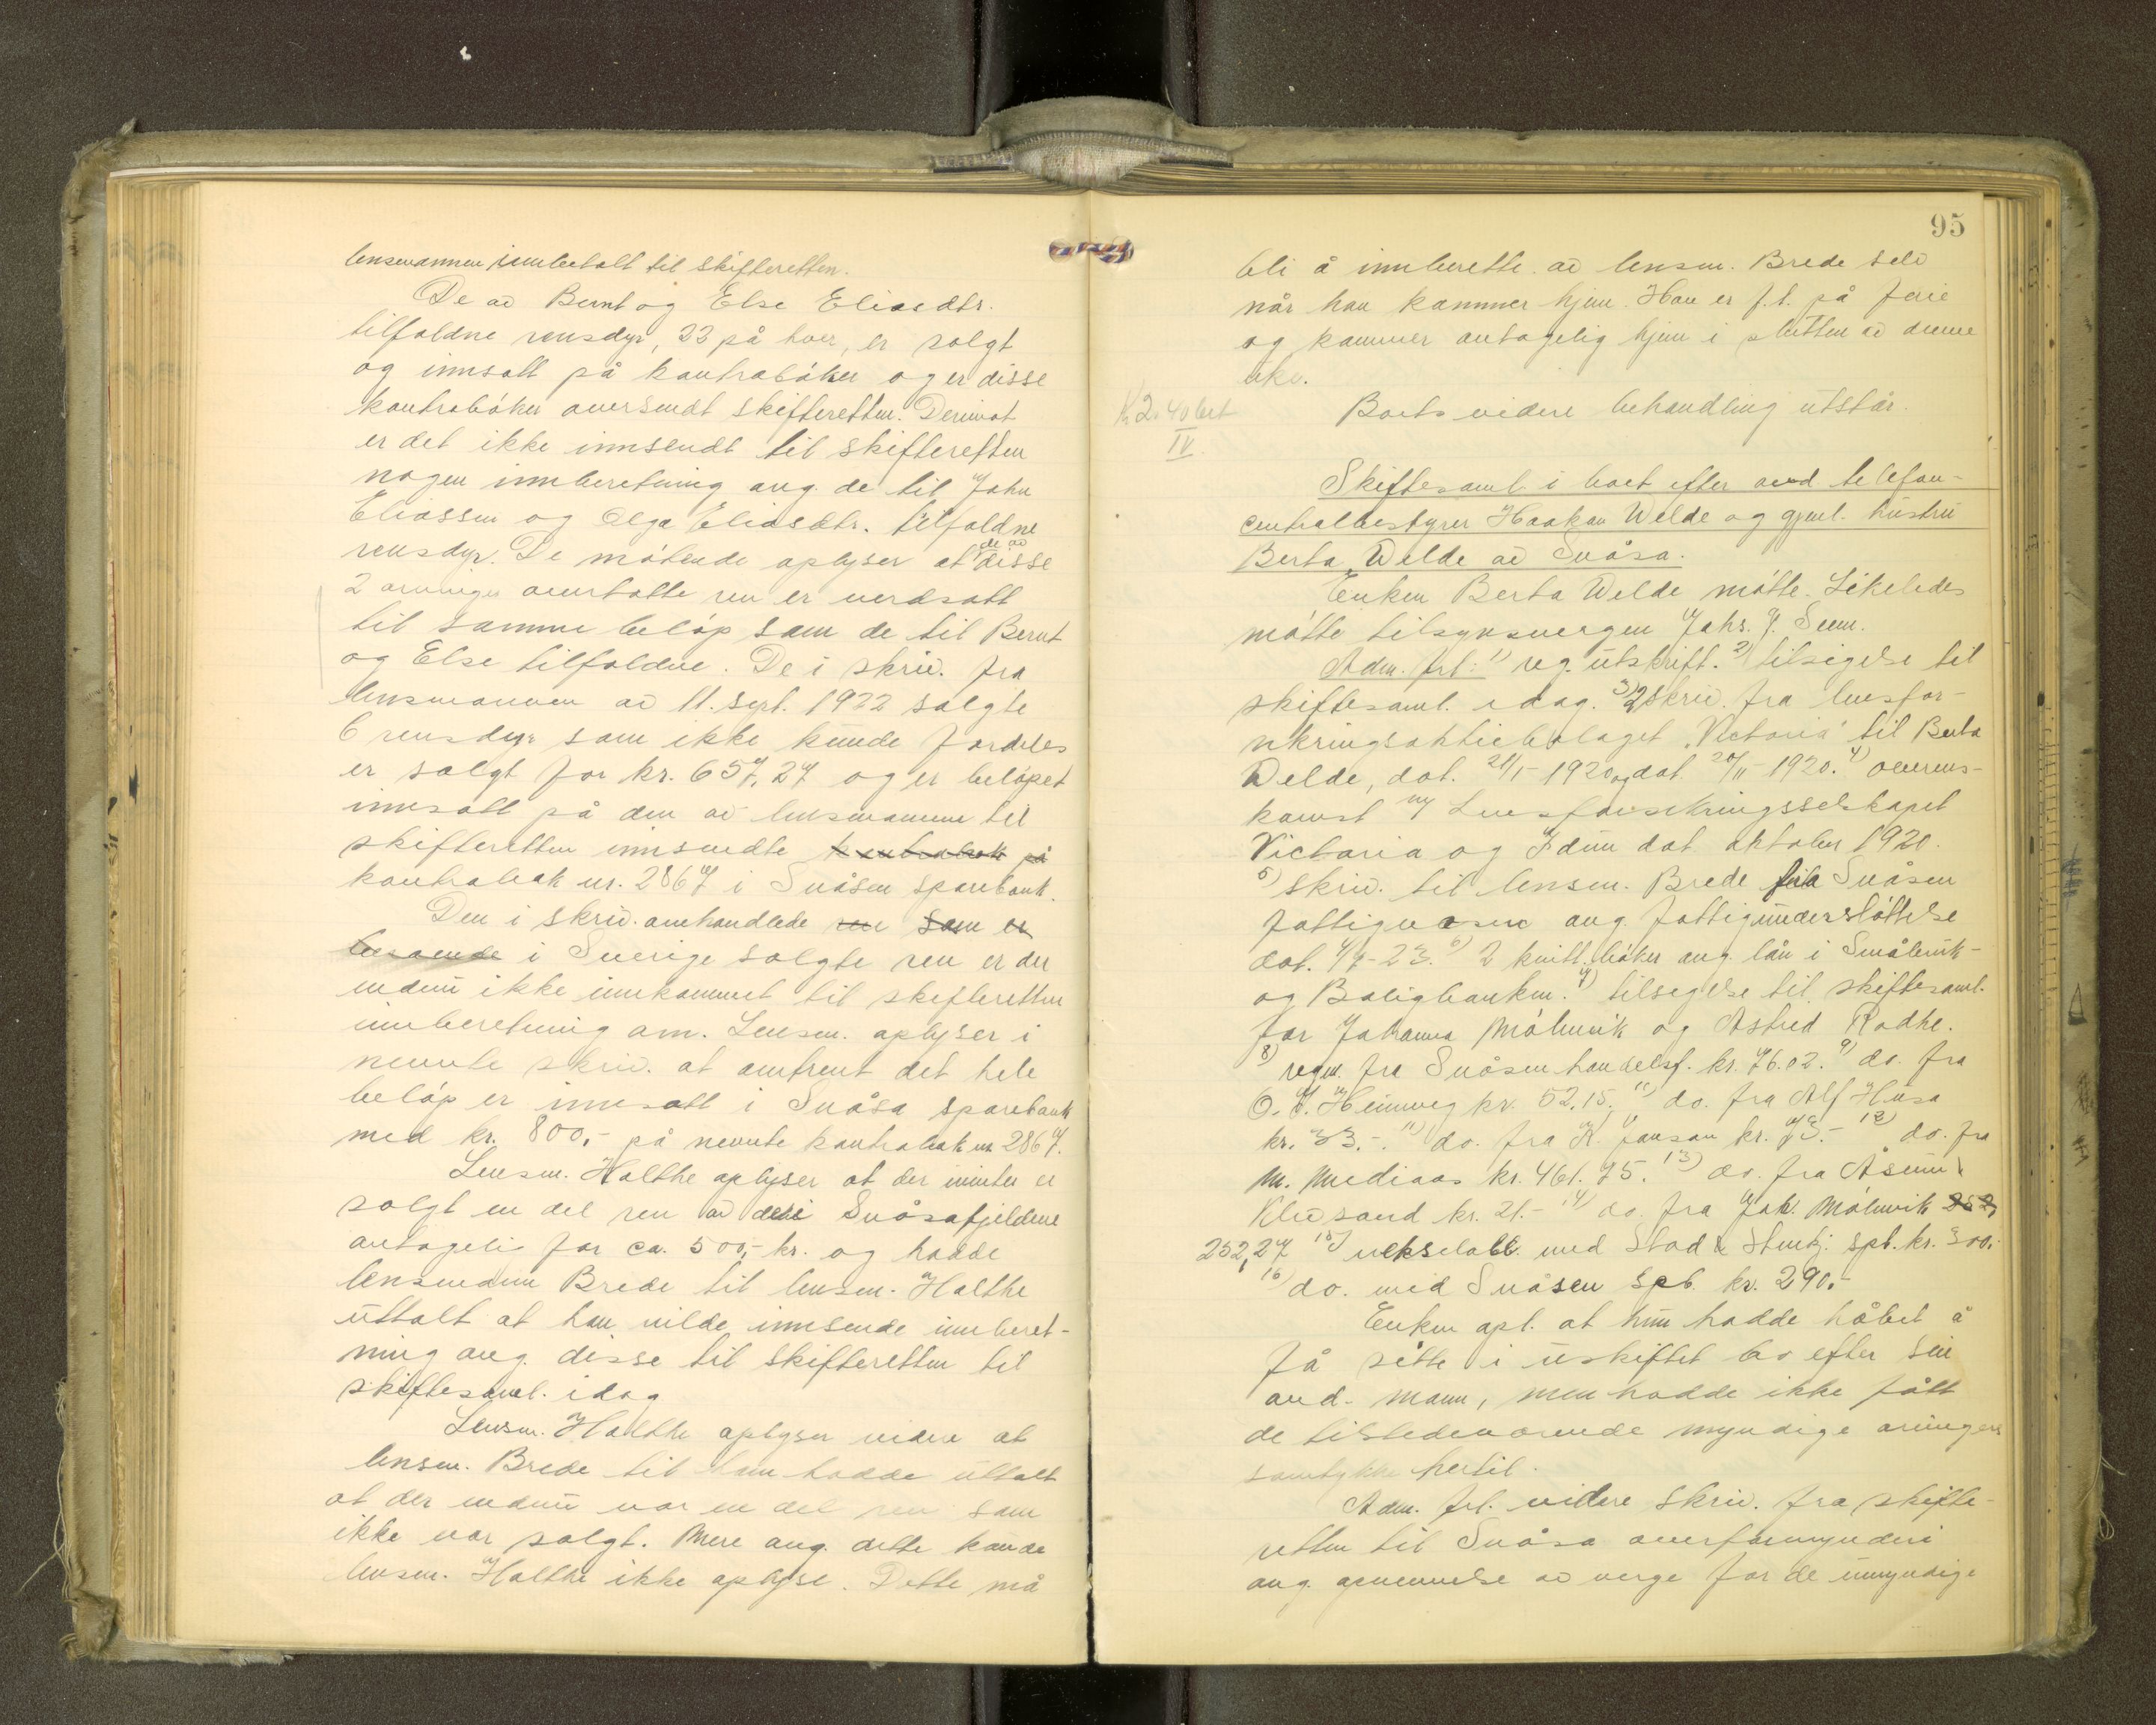 lensmannen innbetalt til skifteretten.
De av Bernt og Else Eliasdtr.
tilfaldne rensdyr, 23 på hver, er solgt
og innsatt på kontrabøker og er disse
kontrabøker oversendt skifteretten. Derimot
er det ikke innsendt til skifteretten
nogen innberetning ang. de til John
Eliassen og Olga Eliasdtr. tilfaldne
rensdyr. De møtende oplyser at de av disse
2 arvinger overtatte ren er verdsatt
til samme beløp som de til Bernt
og Else tilfaldne. De i skriv. fra
lensmannen av 11. sept. 1922 solgte
6 rensdyr som ikke kunde fordeles
er solgt for kr. 657,27 og er beløpet
innsatt på den av lensmannen til
skifteretten innsendte kontrabok på
kontrabok nr. 2867 i Snåsen sparebank.
Den i skriv. omhandlede ren som er
beroende i Sverige solgte ren er der
endnu ikke innkommet til skifteretten
innberetning om. Lensm. oplyser i
nevnte skriv. at omtrent det hele
beløp er innsatt i Snåsa sparebank
med kr. 800,- på nevnte kontrabok nr. 2867.
Lensm. Halthe oplyser at der i vinter er
solgt en del ren av de i Snåsafjeldene
antagelig for ca. 500,- kr. og hadde
lensmann Brede til lensm. Halthe
uttalt at han vilde innsende innberet-
ning ang. disse til skifteretten til
skiftesaml. idag.
Lensm. Halthe oplyser videre at
lensm. Brede til ham hadde uttalt
at der endnu var en del ren som
ikke var solgt. Mere ang. dette kunde
lensm. Halthe ikke oplyse. Dette må
95
bli å innberette av lensm. Brede selv
når han kommer hjem. Han er f.t. på ferie
og kommer antagelig hjem i slutten av denne
uke.
Boets videre behandling utstår.
Kr 2.40 bet
IV.
Skiftesaml. i boet efter avd telefon-
centralbestyrer Haakon Welde og gjenl. hustru
Berta Welde av Snåsa.
Enken Berta Welde møtte. Likeledes
møtte tilsynsvergen Johs. J. Seem.
Adm. frl: 1) reg. utskrift. 2) tilsigelse til
skiftesaml. idag. 3) 2 skriv. fra livsfor-
sikringsaktiebolaget "Victoria" til Berta
Welde, dat. 21/1-1920 og dat. 20/11-1920. 4) overens-
komst m/ Livsforsikringsselskapet
Victoria og Idun dat. oktober 1920.
5) skriv. til lensm. Brede fra Snåsen
fattigvesen ang. fattigunderstøttelse
dat. 4/4-23. 6) 2 kvitt.bøker ang. lån i Småbruk-
og Boligbanken. 7) tilsigelse til skiftesaml.
for Johanna Mølnvik og Astrid Rodhe.
8) regn. fra Snåsen handelsf. kr. 76.02. 9) do. fra
O. J. Heimveg kr. 52,15. 10) do. fra Alf Husa
kr. 33.-. 11) do. fra K. Janson kr. 73.- 12) do. fra
M. Mediaas kr. 461.75. 13) do. fra Åsmund
Klevsand kr. 21.- 14) do. fra Joh. Mølnvik 252,
252,27 15) vekselobl. med Stod & Stenkj. spb. kr. 300,-
16) do. med Snåsen spb. kr. 290,-
Enken opl. at hun hadde håbet å
få sitte i uskiftet bo efter sin
avd. mann, men hadde ikke fått
de tilstedeværende myndige arvingers
samtykke hertil.
Adm. frl. videre skriv. fra skifte-
retten til Snåsa overformynderi
ang. opnevnelse av verge for de umyndige